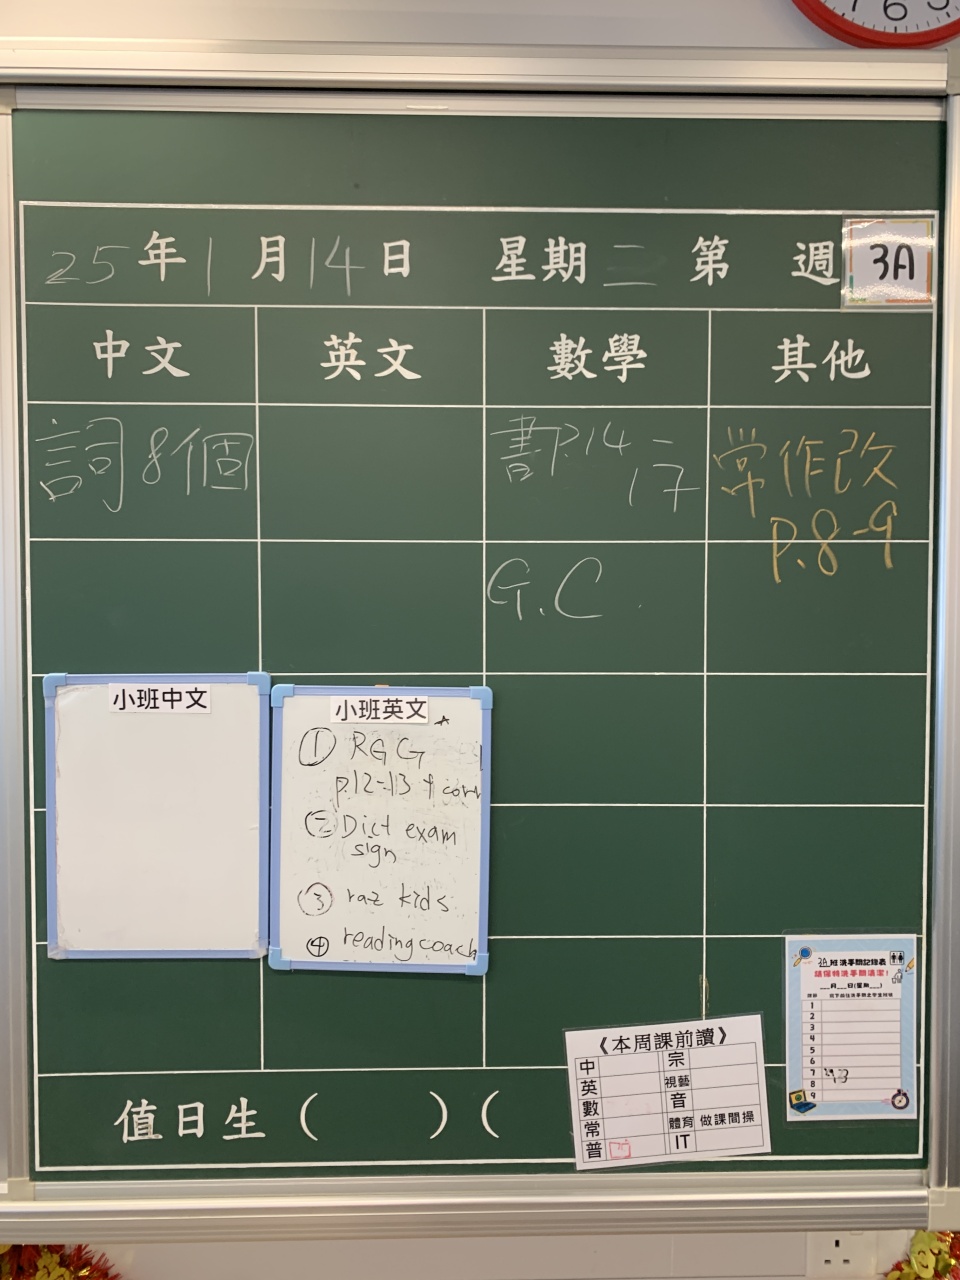 25年1月14日 星期二 第 週 3A
中文 英文 數學 其他
詞8個
書P.14-17
常作改
P.8-9
G.C.
小班中文
小班英文
① RGG
p.12-13 + corr
② Dict exam
sign
③ raz kids
④ reading coach
值日生 ( ) (
《本周課前讀》
中 宗
英 視藝
數 音
常 體育 做課間操
普 IT
3A班洗手間記錄表
請保持洗手間清潔!
___月___日(星期___)
1
2
3
4
5
6
7
8
9